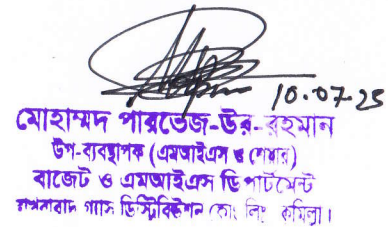 10.07.25
মোহাম্মদ পারভেজ-উর-রহমান
উপ-ব্যবস্থাপক (এমআইএস ও শেয়ার)
বাজেট ও এমআইএস ডিপার্টমেন্ট
বাখরাবাদ গ্যাস ডিস্ট্রিবিউশন কোং লিঃ কুমিল্লা।